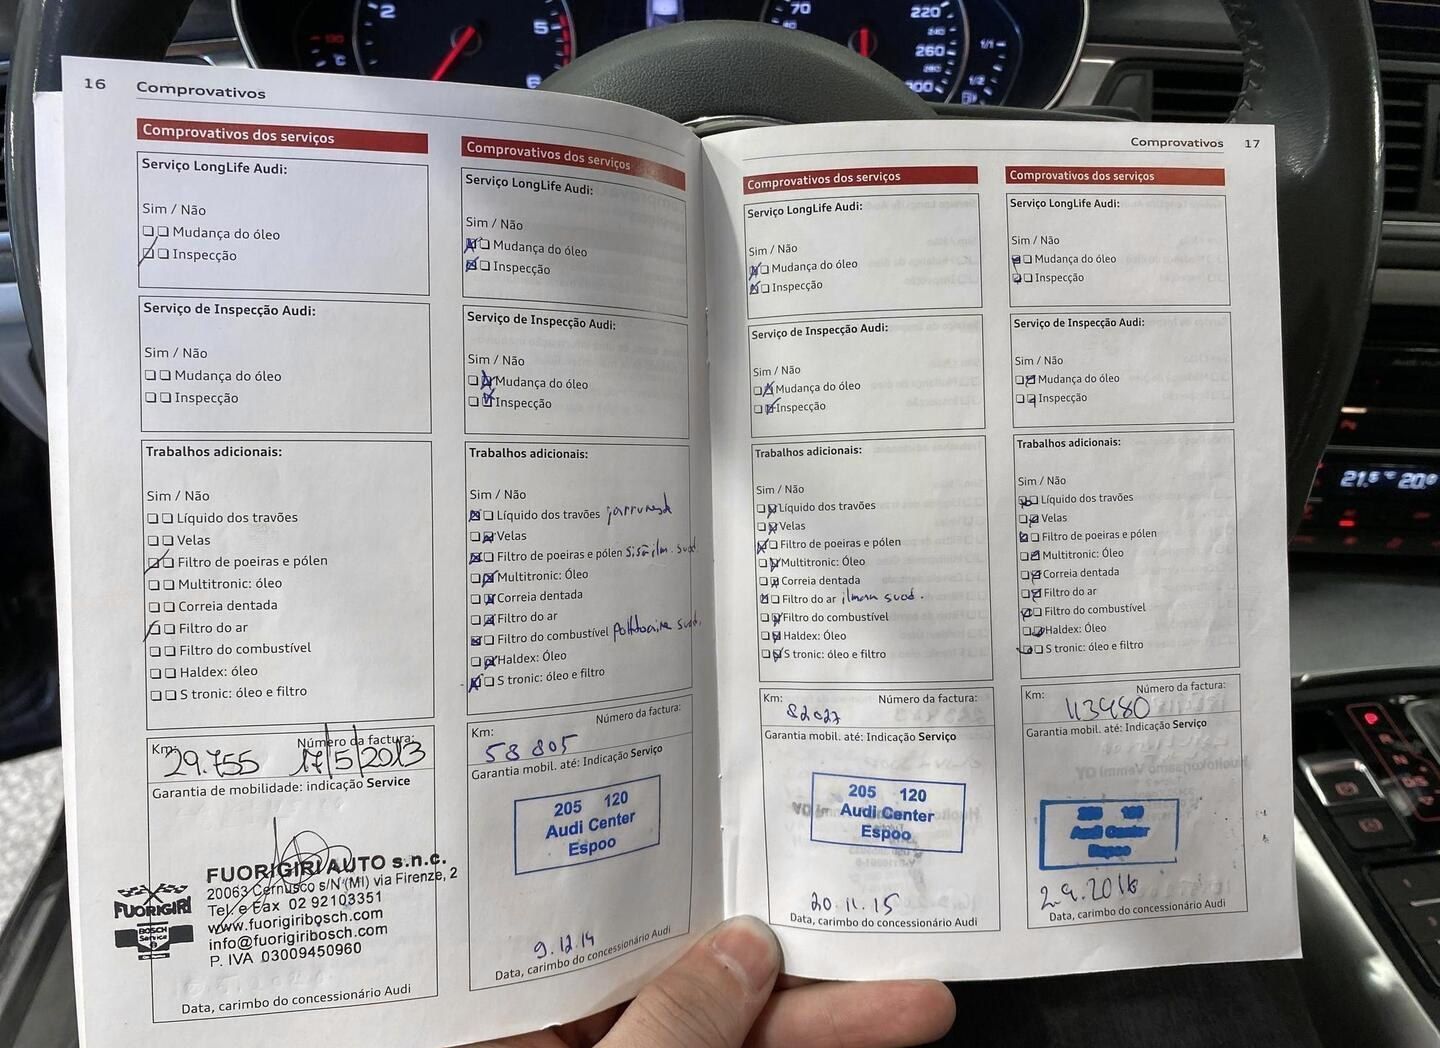 2
5
6
130
°C
70
220
240
260
280
300
1/1
1/2
16 Comprovativos
Comprovativos dos serviços
Serviço LongLife Audi:
Sim / Não
Mudança do óleo
Inspecção
Serviço de Inspecção Audi:
Sim / Não
Mudança do óleo
Inspecção
Trabalhos adicionais:
Sim / Não
Líquido dos travões
Velas
Filtro de poeiras e pólen
Multitronic: óleo
Correia dentada
Filtro do ar
Filtro do combustível
Haldex: óleo
S tronic: óleo e filtro
Km: Número da factura:
29.755 17/5/2013
Garantia de mobilidade: indicação Service
FUORIGIRI AUTO s.n.c.
20063 Cernusco s/N (MI) via Firenze, 2
Tel. e Fax 02 92103351
www.fuorigiribosch.com
info@fuorigiribosch.com
P. IVA 03009450960
FUORIGIRI
BOSCH
Service
Data, carimbo do concessionário Audi
Comprovativos dos serviços
Serviço LongLife Audi:
Sim / Não
Mudança do óleo
Inspecção
Serviço de Inspecção Audi:
Sim / Não
Mudança do óleo
Inspecção
Trabalhos adicionais:
Sim / Não
Líquido dos travões jarrunest
Velas
Filtro de poeiras e pólen sisäilm. suod.
Multitronic: Óleo
Correia dentada
Filtro do ar
Filtro do combustível polttoaine suod.
Haldex: Óleo
S tronic: óleo e filtro
Número da factura:
Km:
58 805
Garantia mobil. até: Indicação Serviço
205 120
Audi Center
Espoo
9.12.14
Data, carimbo do concessionário Audi
Comprovativos 17
Comprovativos dos serviços
Serviço LongLife Audi:
Sim / Não
Mudança do óleo
Inspecção
Serviço de Inspecção Audi:
Sim / Não
Mudança do óleo
Inspecção
Trabalhos adicionais:
Sim / Não
Líquido dos travões
Velas
Filtro de poeiras e pólen
Multitronic: Óleo
Correia dentada
Filtro do ar ilman suod.
Filtro do combustível
Haldex: Óleo
S tronic: óleo e filtro
Km: Número da factura:
82027
Garantia mobil. até: Indicação Serviço
205 120
Audi Center
Espoo
20.11.15
Data, carimbo do concessionário Audi
Comprovativos dos serviços
Serviço LongLife Audi:
Sim / Não
Mudança do óleo
Inspecção
Serviço de Inspecção Audi:
Sim / Não
Mudança do óleo
Inspecção
Trabalhos adicionais:
Sim / Não
Líquido dos travões
Velas
Filtro de poeiras e pólen
Multitronic: Óleo
Correia dentada
Filtro do ar
Filtro do combustível
Haldex: Óleo
S tronic: óleo e filtro
Km: Número da factura:
113980
Garantia mobil. até: Indicação Serviço
205 120
Audi Center
Espoo
2.9.2016
Data, carimbo do concessionário Audi
21.5 °C 20.0